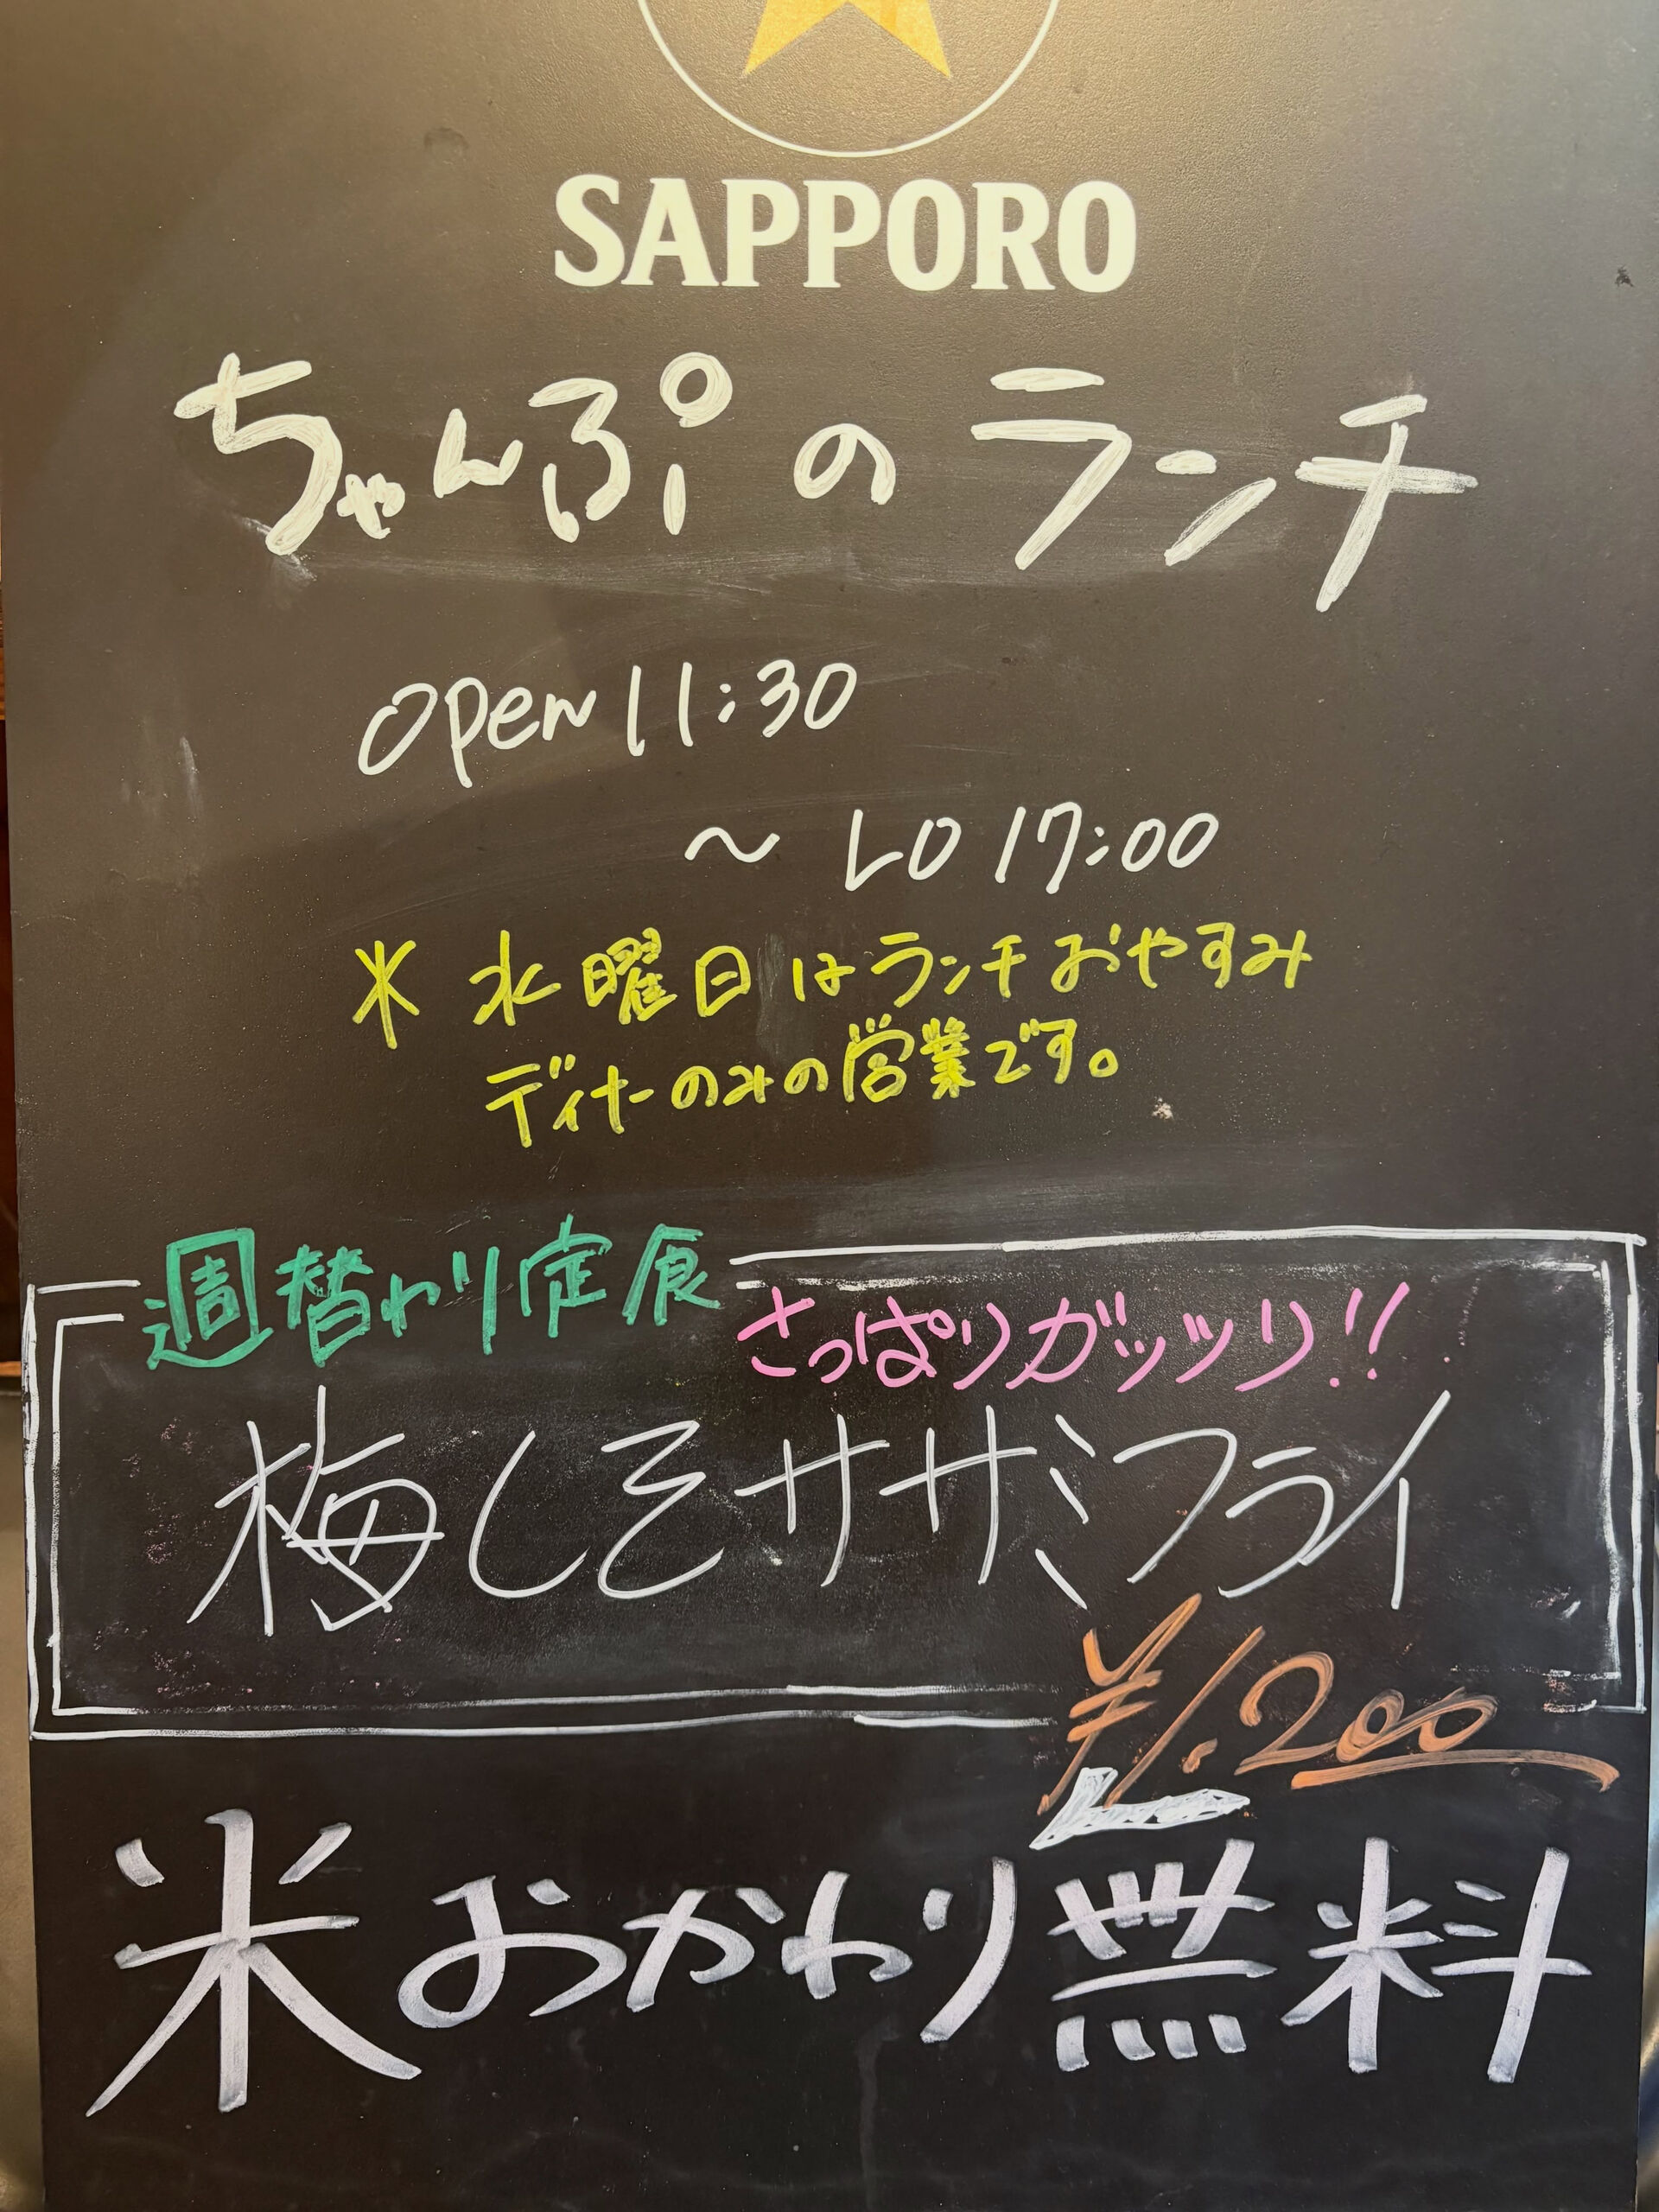 SAPPORO
ちゃんぷのランチ
open 11:30
～ LO 17:00
※ 水曜日はランチおやすみ
ディナーのみの営業です。
週替わり定食
さっぱりガッツリ!!
梅しそササミフライ
¥1.200
米おかわり無料